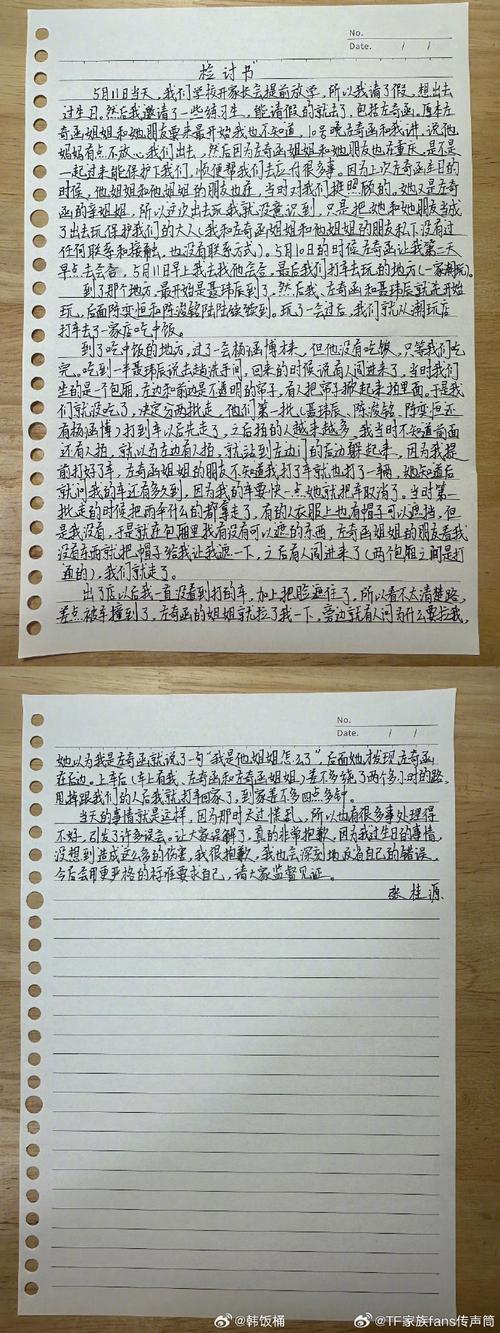 No.
Date. / /
检讨书
5月11日当天，我们学校开家长会提前放学，所以我请了假，想出去
过生日。然后我邀请了一些练习生，能请假的就去了，包括左奇函。原本左
奇函姐姐和她朋友要来最开始我也不知道，10号晚左奇函和我讲，说他
妈妈有点不放心我们出去，然后因为左奇函姐姐和她朋友也在重庆，是不是
一起过来能保护下我们，顺便帮我们去应付很多事，因为上次左奇函生日的
时候，他姐姐和他姐姐的朋友也在，当时对我们挺照顾的，她又是左奇
函的亲姐姐，所以这次出去玩我就没意识到，只是把她和她朋友当成
了出去玩保护我们的大人（我和左奇函姐姐和他姐姐的朋友私下没有过
任何联系和接触，也没有联系方式）。5月10日的时候左奇函让我第二天
早点去会合，5月11日早上我去找他会合，最后我们打车去玩的地方（一家潮玩）。
到了那个地方，最开始是聂玮辰到了，然后我、左奇函和聂玮辰就先开始
玩，后面陈奕恒和陈浚铭陆陆续续到。玩了一会过后，我们就从潮玩店
打车去了一家店吃中饭。
到了吃中饭的地方，过了一会杨涵博才来，但他没有吃饭，只等我们吃
完。吃到一半聂玮辰说出去趟洗手间，回来的时候说有人闯进来了，当时我们
坐的是一个包厢，左边和前边是不透明的帘子，有人把帘子掀起来拍里面。于是我
们就没吃了，决定分两批走，他们第一批（聂玮辰、陈浚铭、陈奕恒还
有杨涵博）打到车以后先走了，之后拍的人越来越多，我当时不知道前面
还有人拍，就以为左边有人拍，就站到左边门的后边躲起来，因为我提
前打好了车，左奇函姐姐的朋友不知道我打了车就也打了一辆，她知道后
就问我的车还有多久到，因为我的车要快一点她就把车取消了，当时第一
批走的时候把雨伞什么的都拿走了，有的人衣服上也有帽子可以遮挡，但
是我没有，于是就在包厢里找有没有可以遮的东西，左奇函姐姐的朋友看我
没有东西就把帽子给我让我遮一下，之后有人闯进来了（两个包厢之间是打
通的），我们就走了。
出了店以后我一直没看到打的车，加上把脸遮住了，所以看不太清楚路，
差点被车撞到了，左奇函的姐姐就拉了我一下，旁边就有人问为什么要拉我，
No.
Date. / /
她以为我是左奇函就说了一句“我是他姐姐怎么了”，后面她才发现左奇函
在后边。上车后（车上有我、左奇函和左奇函姐姐）差不多绕了两个多小时的路，
甩掉跟我们的人后我就打车回家了，到家差不多四点多钟。
当天的事情就是这样，因为那时太慌乱，所以也有很多事处理得
不好，引发了许多误会。让大家误解了，真的非常抱歉，因为我过生日的事情，
没想到造成这么多的伤害，我很抱歉，我也会深刻地反省自己的错误，
今后会用更严格的标准要求自己，请大家监督见证。
张桂源
@韩饭桶
@TF家族fans传声筒